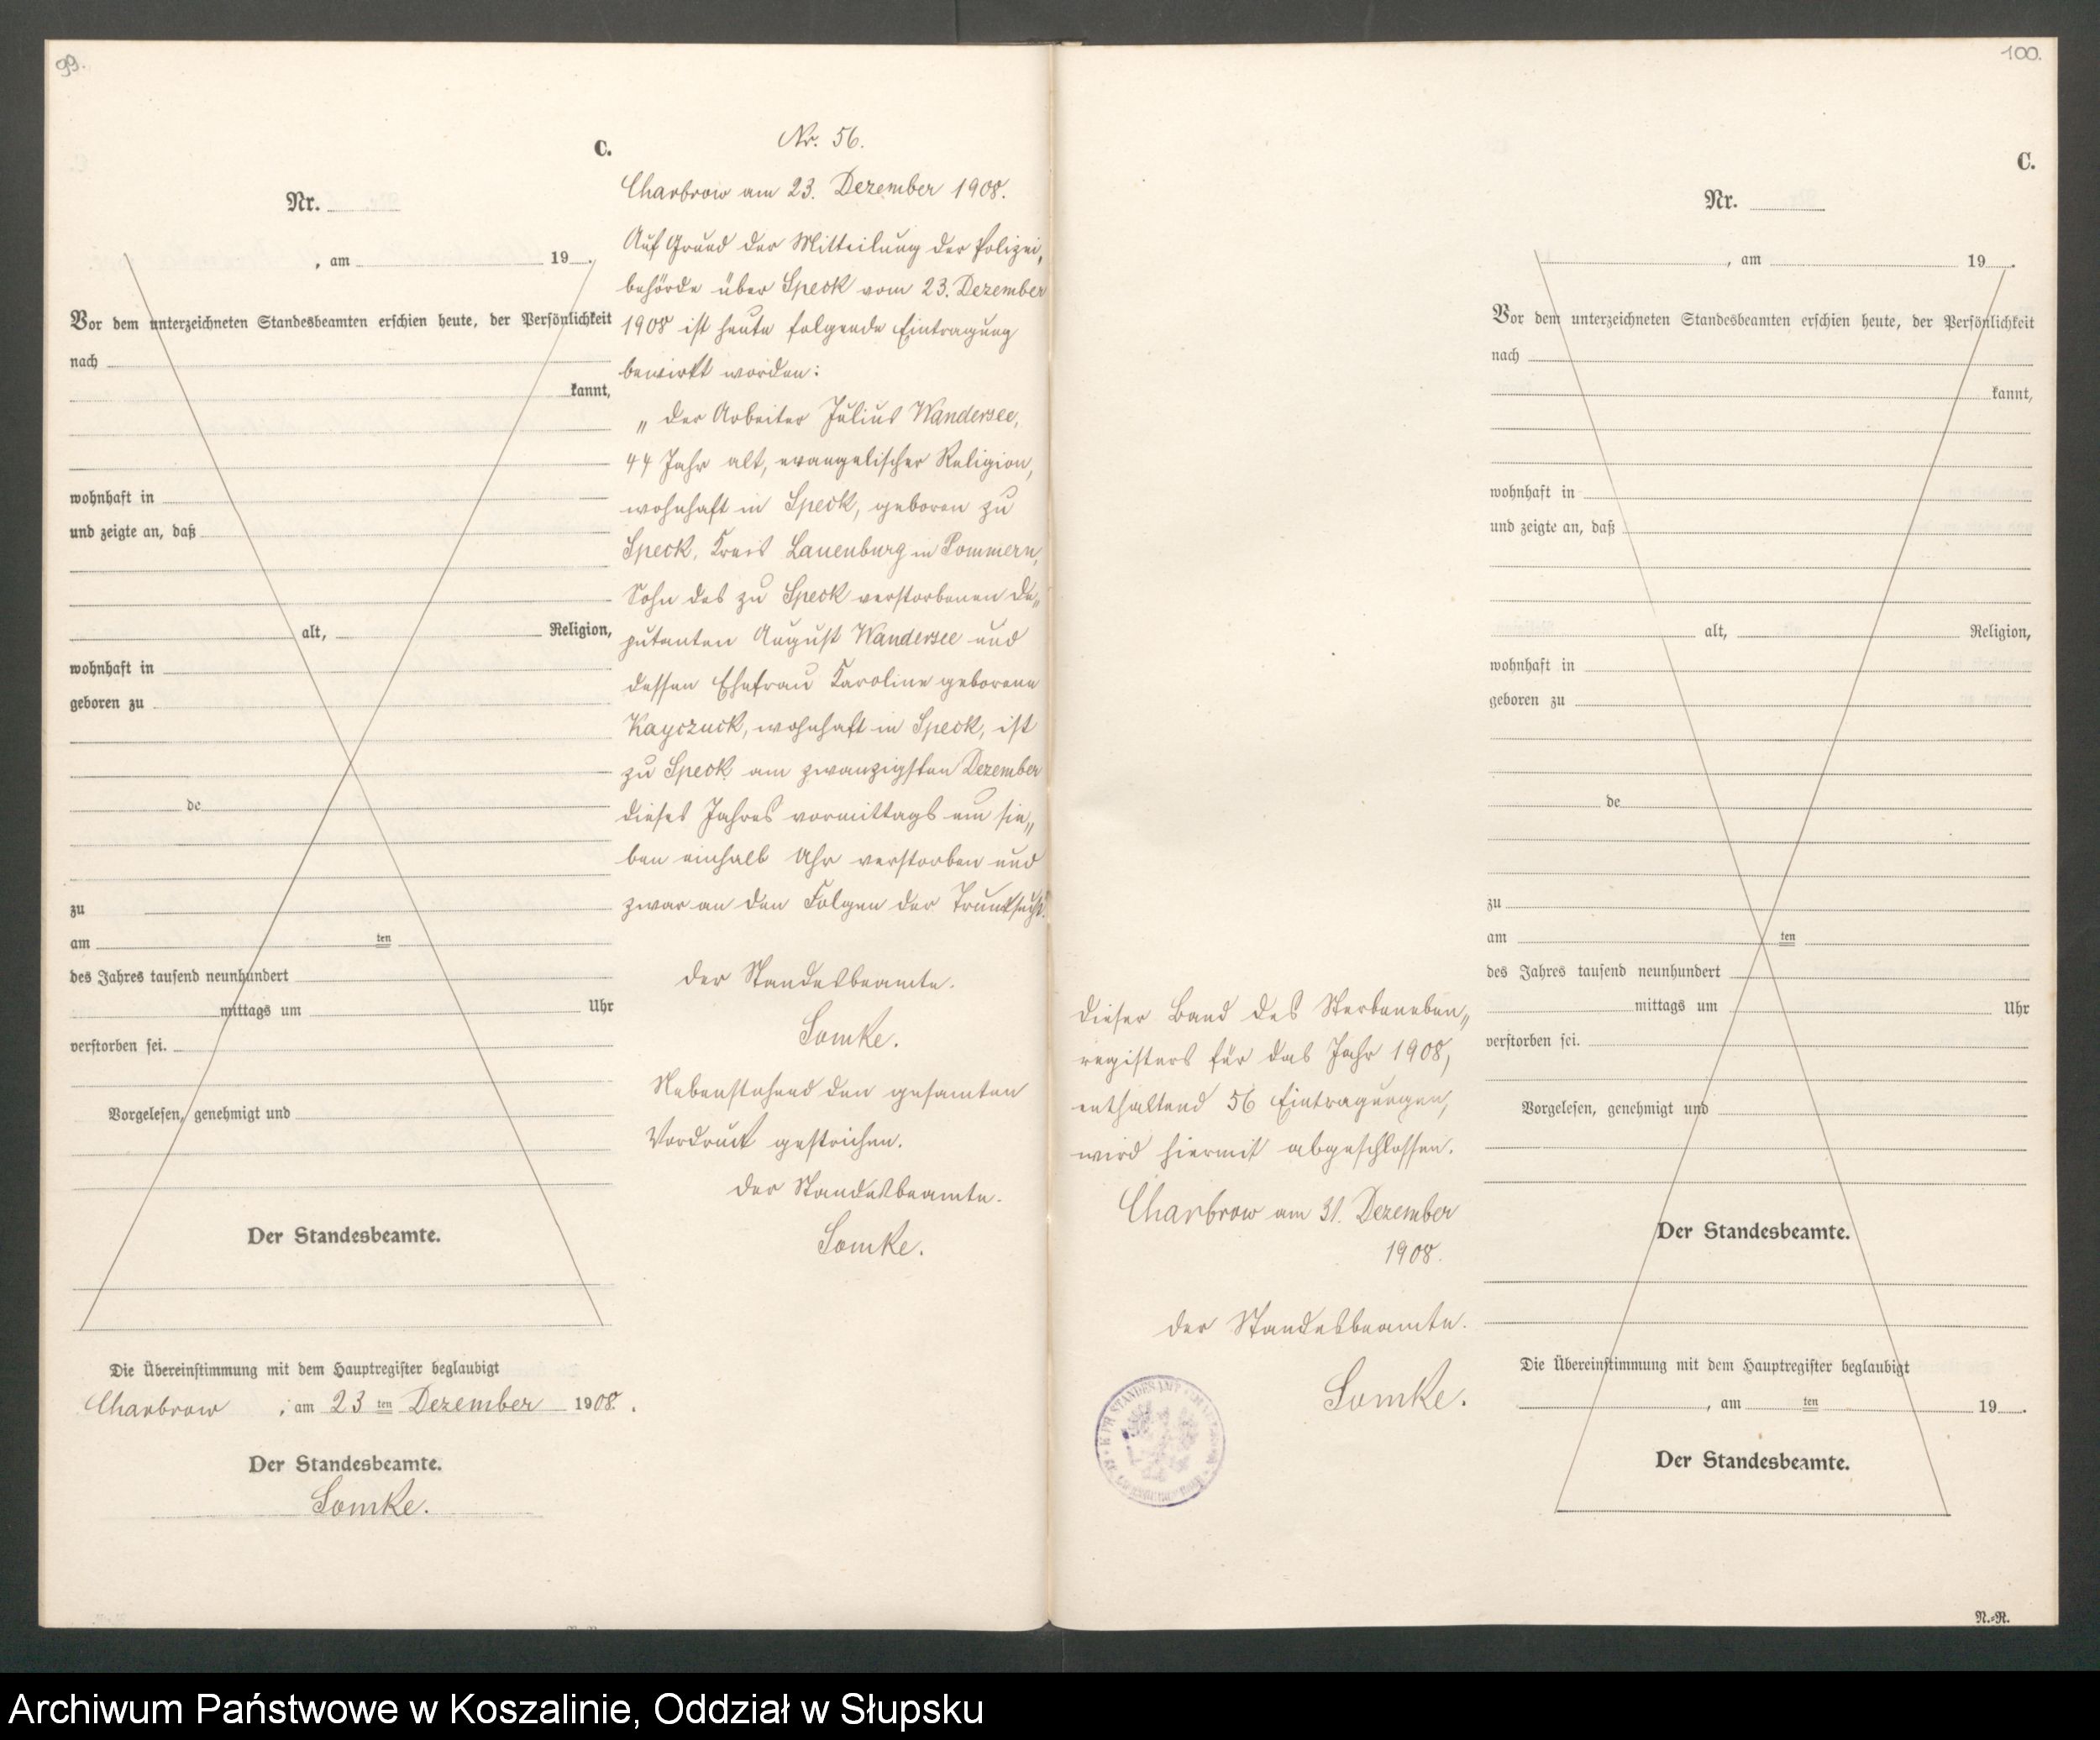 99.
C.
Nr.
, am 19 .
Vor dem unterzeichneten Standesbeamten erschien heute, der Persönlichkeit
nach
kannt,
wohnhaft in
und zeigte an, daß
alt, Religion,
wohnhaft in
geboren zu
de
zu
am ten
des Jahres tausend neunhundert
mittags um Uhr
verstorben sei.
Vorgelesen, genehmigt und
Der Standesbeamte.
Die Übereinstimmung mit dem Hauptregister beglaubigt
Charbrow , am 23 ten Dezember 1908.
Der Standesbeamte.
Lomke.
Nr. 56.
Charbrow am 23. Dezember 1908.
Auf Grund der Mitteilung der Polizei„
behörde über Speck vom 23. Dezember
1908 ist heute folgende Eintragung
bewirkt worden:
„ Der Arbeiter Julius Wandersee,
44 Jahr alt, evangelischer Religion,
wohnhaft in Speck, geboren zu
Speck, Kreis Lauenburg in Pommern,
Sohn des zu Speck verstorbenen De„
putanten August Wandersee und
dessen Ehefrau Karoline geborene
Kayczuck, wohnhaft in Speck, ist
zu Speck am zwanzigsten Dezember
dieses Jahres vormittags um sie„
ben einhalb Uhr verstorben und
zwar an den Folgen der Trunksucht."
Der Standesbeamte.
Lomke.
Nebenstehend den gesamten
Vordruck gestrichen.
Der Standesbeamte.
Lomke.
100.
Dieser Band des Sterbeneben„
registers für das Jahr 1908,
enthaltend 56 Eintragungen,
wird hiermit abgeschlossen.
Charbrow am 31. Dezember
1908.
Der Standesbeamte.
Lomke.
C.
Nr.
, am 19 .
Vor dem unterzeichneten Standesbeamten erschien heute, der Persönlichkeit
nach
kannt,
wohnhaft in
und zeigte an, daß
alt, Religion,
wohnhaft in
geboren zu
de
zu
am ten
des Jahres tausend neunhundert
mittags um Uhr
verstorben sei.
Vorgelesen, genehmigt und
Der Standesbeamte.
Die Übereinstimmung mit dem Hauptregister beglaubigt
, am ten 19 .
Der Standesbeamte.
N.-R.
Archiwum Państwowe w Koszalinie, Oddział w Słupsku